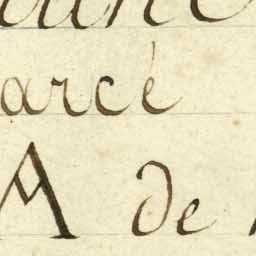 arcé
A de